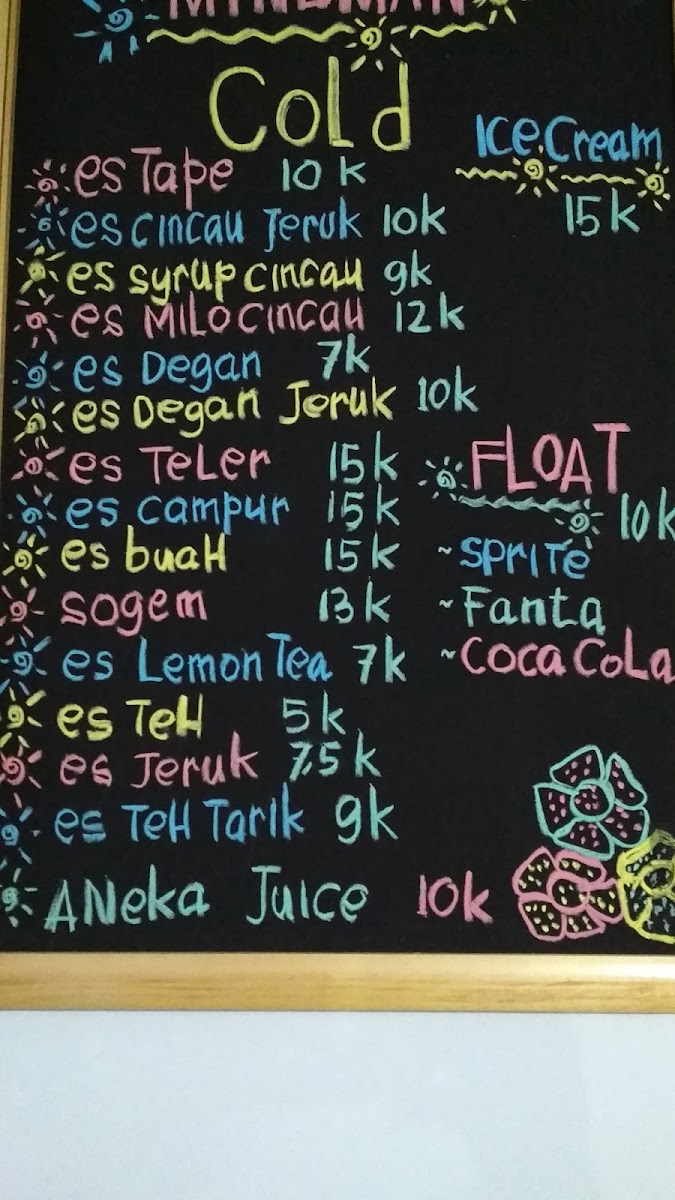 MINUMAN
Cold
es Tape 10k
es cincau Jeruk 10k
es syrup cincau 9k
es MiLo cincau 12k
es Degan 7k
es Degan Jeruk 10k
es TeLer 15k
es campur 15k
es buaH 15k
sogem 13k
es Lemon Tea 7k
es TeH 5k
es Jeruk 7.5k
es TeH Tarik 9k
ANeka Juice 10k
Ice Cream
15k
FLOAT
10k
~ Sprite
~ Fanta
~ Coca CoLa